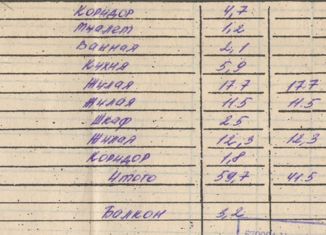 Коридор 4,7
Туалет 1,2
Ванная 2,1
Кухня 5,9
Жилая 17.7 17.7
Жилая 11.5 11.5
Шкаф 2.5
Жилая 12,3 12,3
Коридор 1,8
Итого 59,7 41.5
Балкон 3,2